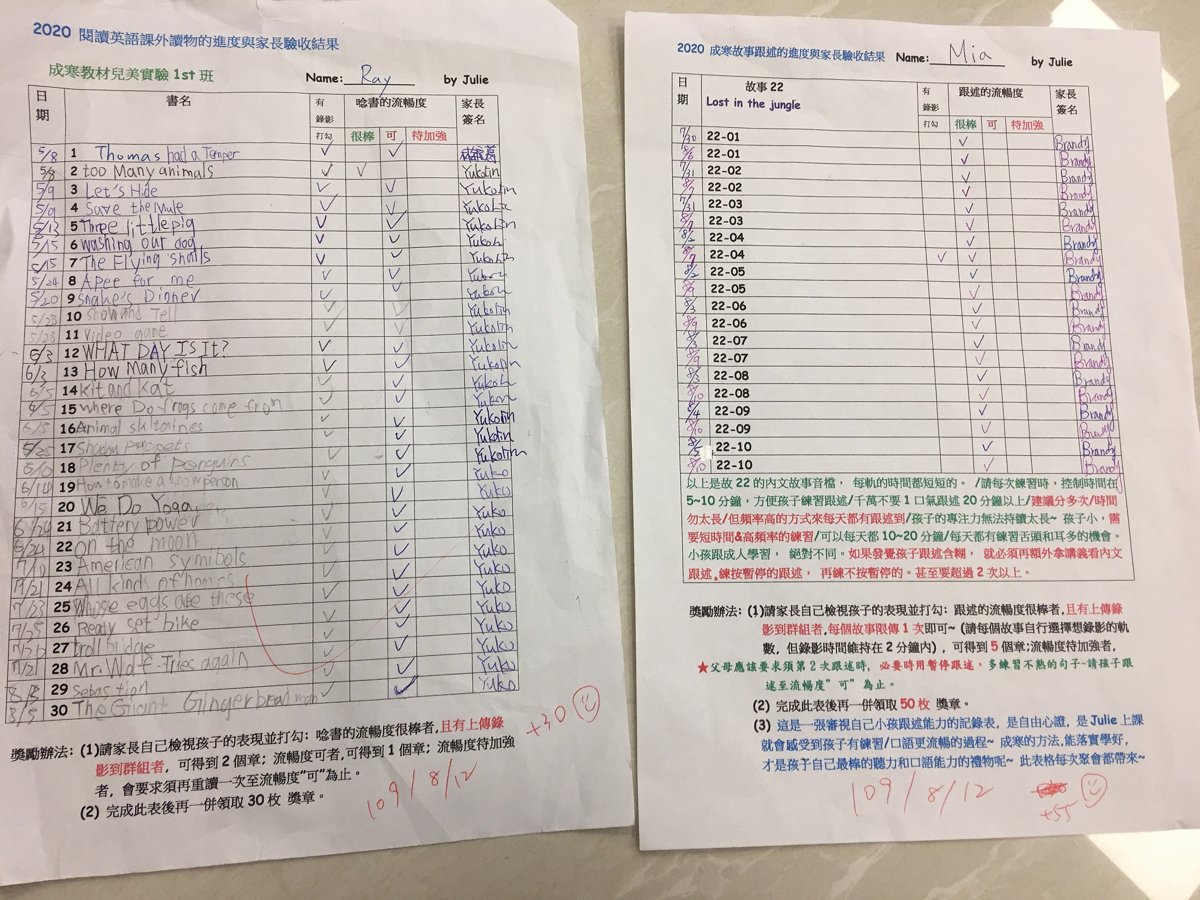 2020 閱讀英語課外讀物的進度與家長驗收結果
成寒教材兒美實驗 1st 班 Name: Ray by Julie
日期 書名 有錄影打勾 唸書的流暢度 家長簽名
很棒 可 待加強
5/8 1 Thomas had a Temper ✓ ✓
5/8 2 too Many animals ✓ ✓ Yukotin
5/9 3 Let's Hide ✓ ✓ Yukotin
5/9 4 Save the Mule ✓ ✓
5/13 5 Three little pig ✓ ✓ Yukotin
5/15 6 washing our dog ✓ ✓
5/15 7 The Flying ✓ ✓ Yukotin
5/24 8 for me ✓ ✓
5/20 9 snake's Dinner ✓ ✓
5/23 10 Show and Tell ✓ ✓ Yukotin
5/23 11 Video game ✓ ✓ Yukotin
6/3 12 WHAT DAY IS It? ✓ ✓ Yukotin
6/3 13 How Many fish ✓ ✓ Yukotin
6/5 14 kit and kat ✓ ✓
6/5 15 where Do frogs come from ✓ ✓
6/5 16 Animal ✓ ✓ Yukotin
17 ✓ ✓ Yukotin
18 Plenty of penguins ✓ ✓ Yuko
6/14 19 How to make a snow person ✓ ✓ Yuko
6/15 20 We Do Yoga ✓ ✓ Yuko
6/24 21 Battery power ✓ ✓ Yuko
6/24 22 on the moon ✓ ✓ Yuko
23 American symbols ✓ ✓ Yuko
24 All kinds of homes ✓ ✓ Yuko
7/23 25 Whose eggs are these ✓ ✓ Yuko
7/25 26 Ready set bike ✓ ✓ Yuko
27 troll bridge ✓ ✓ Yuko
28 Mr. Wolf Tries again ✓ ✓ Yuko
29 Sebastian ✓ ✓ Yuko
8/5 30 The Giant Gingerbread man
獎勵辦法: (1)請家長自己檢視孩子的表現並打勾: 唸書的流暢度很棒者,且有上傳錄
影到群組者, 可得到 2 個章; 流暢度可者,可得到 1 個章; 流暢度待加強
者, 會要求須再重讀一次至流暢度"可"為止。
(2) 完成此表後再一併領取 30 枚 獎章。
+30
109/8/12
2020 成寒故事跟述的進度與家長驗收結果 Name: Mia by Julie
日期 故事 22 Lost in the jungle 有錄影打勾 跟述的流暢度 家長簽名
很棒 可 待加強
7/30 22-01 ✓ Brandy
8/6 22-01 ✓ Brandy
7/31 22-02 ✓ Brandy
8/7 22-02 ✓ Brandy
7/31 22-03 ✓ Brandy
8/7 22-03 ✓ Brandy
8/2 22-04 ✓ Brandy
8/7 22-04 ✓ ✓ Brandy
8/2 22-05 ✓ Brandy
8/9 22-05 ✓ Brandy
8/3 22-06 ✓ Brandy
8/9 22-06 ✓ Brandy
8/3 22-07 ✓ Brandy
8/9 22-07 ✓ Brandy
8/3 22-08 ✓ Brandy
8/10 22-08 ✓ Brandy
8/4 22-09 ✓ Brandy
8/10 22-09 ✓ Brandy
8/5 22-10 ✓ Brandy
8/10 22-10 ✓ Brandy
以上是故 22 的內文故事音檔, 每軌的時間都短短的。 /請每次練習時,控制時間在
5~10 分鐘,方便孩子練習跟述/千萬不要 1 口氣跟述 20 分鐘以上/建議分多次/時間
勿太長/但頻率高的方式來每天都有跟述到/孩子的專注力無法持續太長~ 孩子小, 需
要短時間&高頻率的練習/可以每天都 10~20 分鐘/每天都有練習舌頭和耳多的機會。
小孩跟成人學習, 絕對不同。如果發覺孩子跟述含糊, 就必須再額外拿講義看內文
跟述,練按暫停的跟述, 再練不按暫停的。甚至要超過 2 次以上。
獎勵辦法: (1)請家長自己檢視孩子的表現並打勾: 跟述的流暢度很棒者,且有上傳錄
影到群組者,每個故事限傳 1 次即可~ (請每個故事自行選擇想錄影的軌
數, 但錄影時間維持在 2 分鐘內) , 可得到 5 個章;流暢度待加強者,
★父母應該要求須第 2 次跟述時, 必要時用暫停跟述, 多練習不熟的句子~請孩子跟
述至流暢度" 可" 為止。
(2) 完成此表後再一併領取 50 枚 獎章。
(3) 這是一張審視自己小孩跟述能力的記錄表, 是自由心證, 是 Julie 上課
就會感受到孩子有練習/口語更流暢的過程~ 成寒的方法,能落實學好,
才是孩子自己最棒的聽力和口語能力的禮物呢~ 此表格每次聚會都帶來~
109/8/12
+55